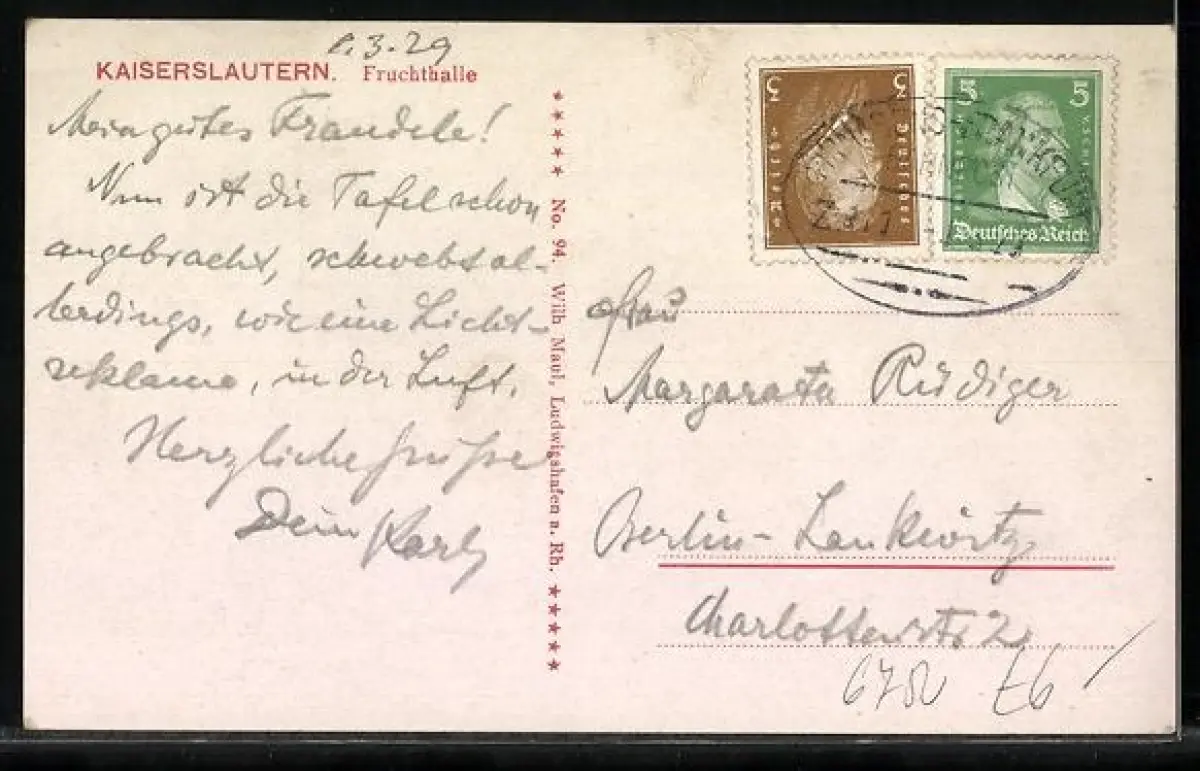 8.3.29
KAISERSLAUTERN. Fruchthalle
Mein gutes Fraudele!
Nun ist die Tafel schon
angebracht, schwebt al-
lerdings, wie eine Licht-
reklame, in der Luft.
Herzliche Grüsse
Dein Karl
No. 94. Wilh Maul, Ludwigshafen a. Rh.
3 3
Deutsches Reich
5 5
Deutsches Reich
Frau
Margarata Rüdiger
Berlin-Lankwitz
Charlottenstr 2